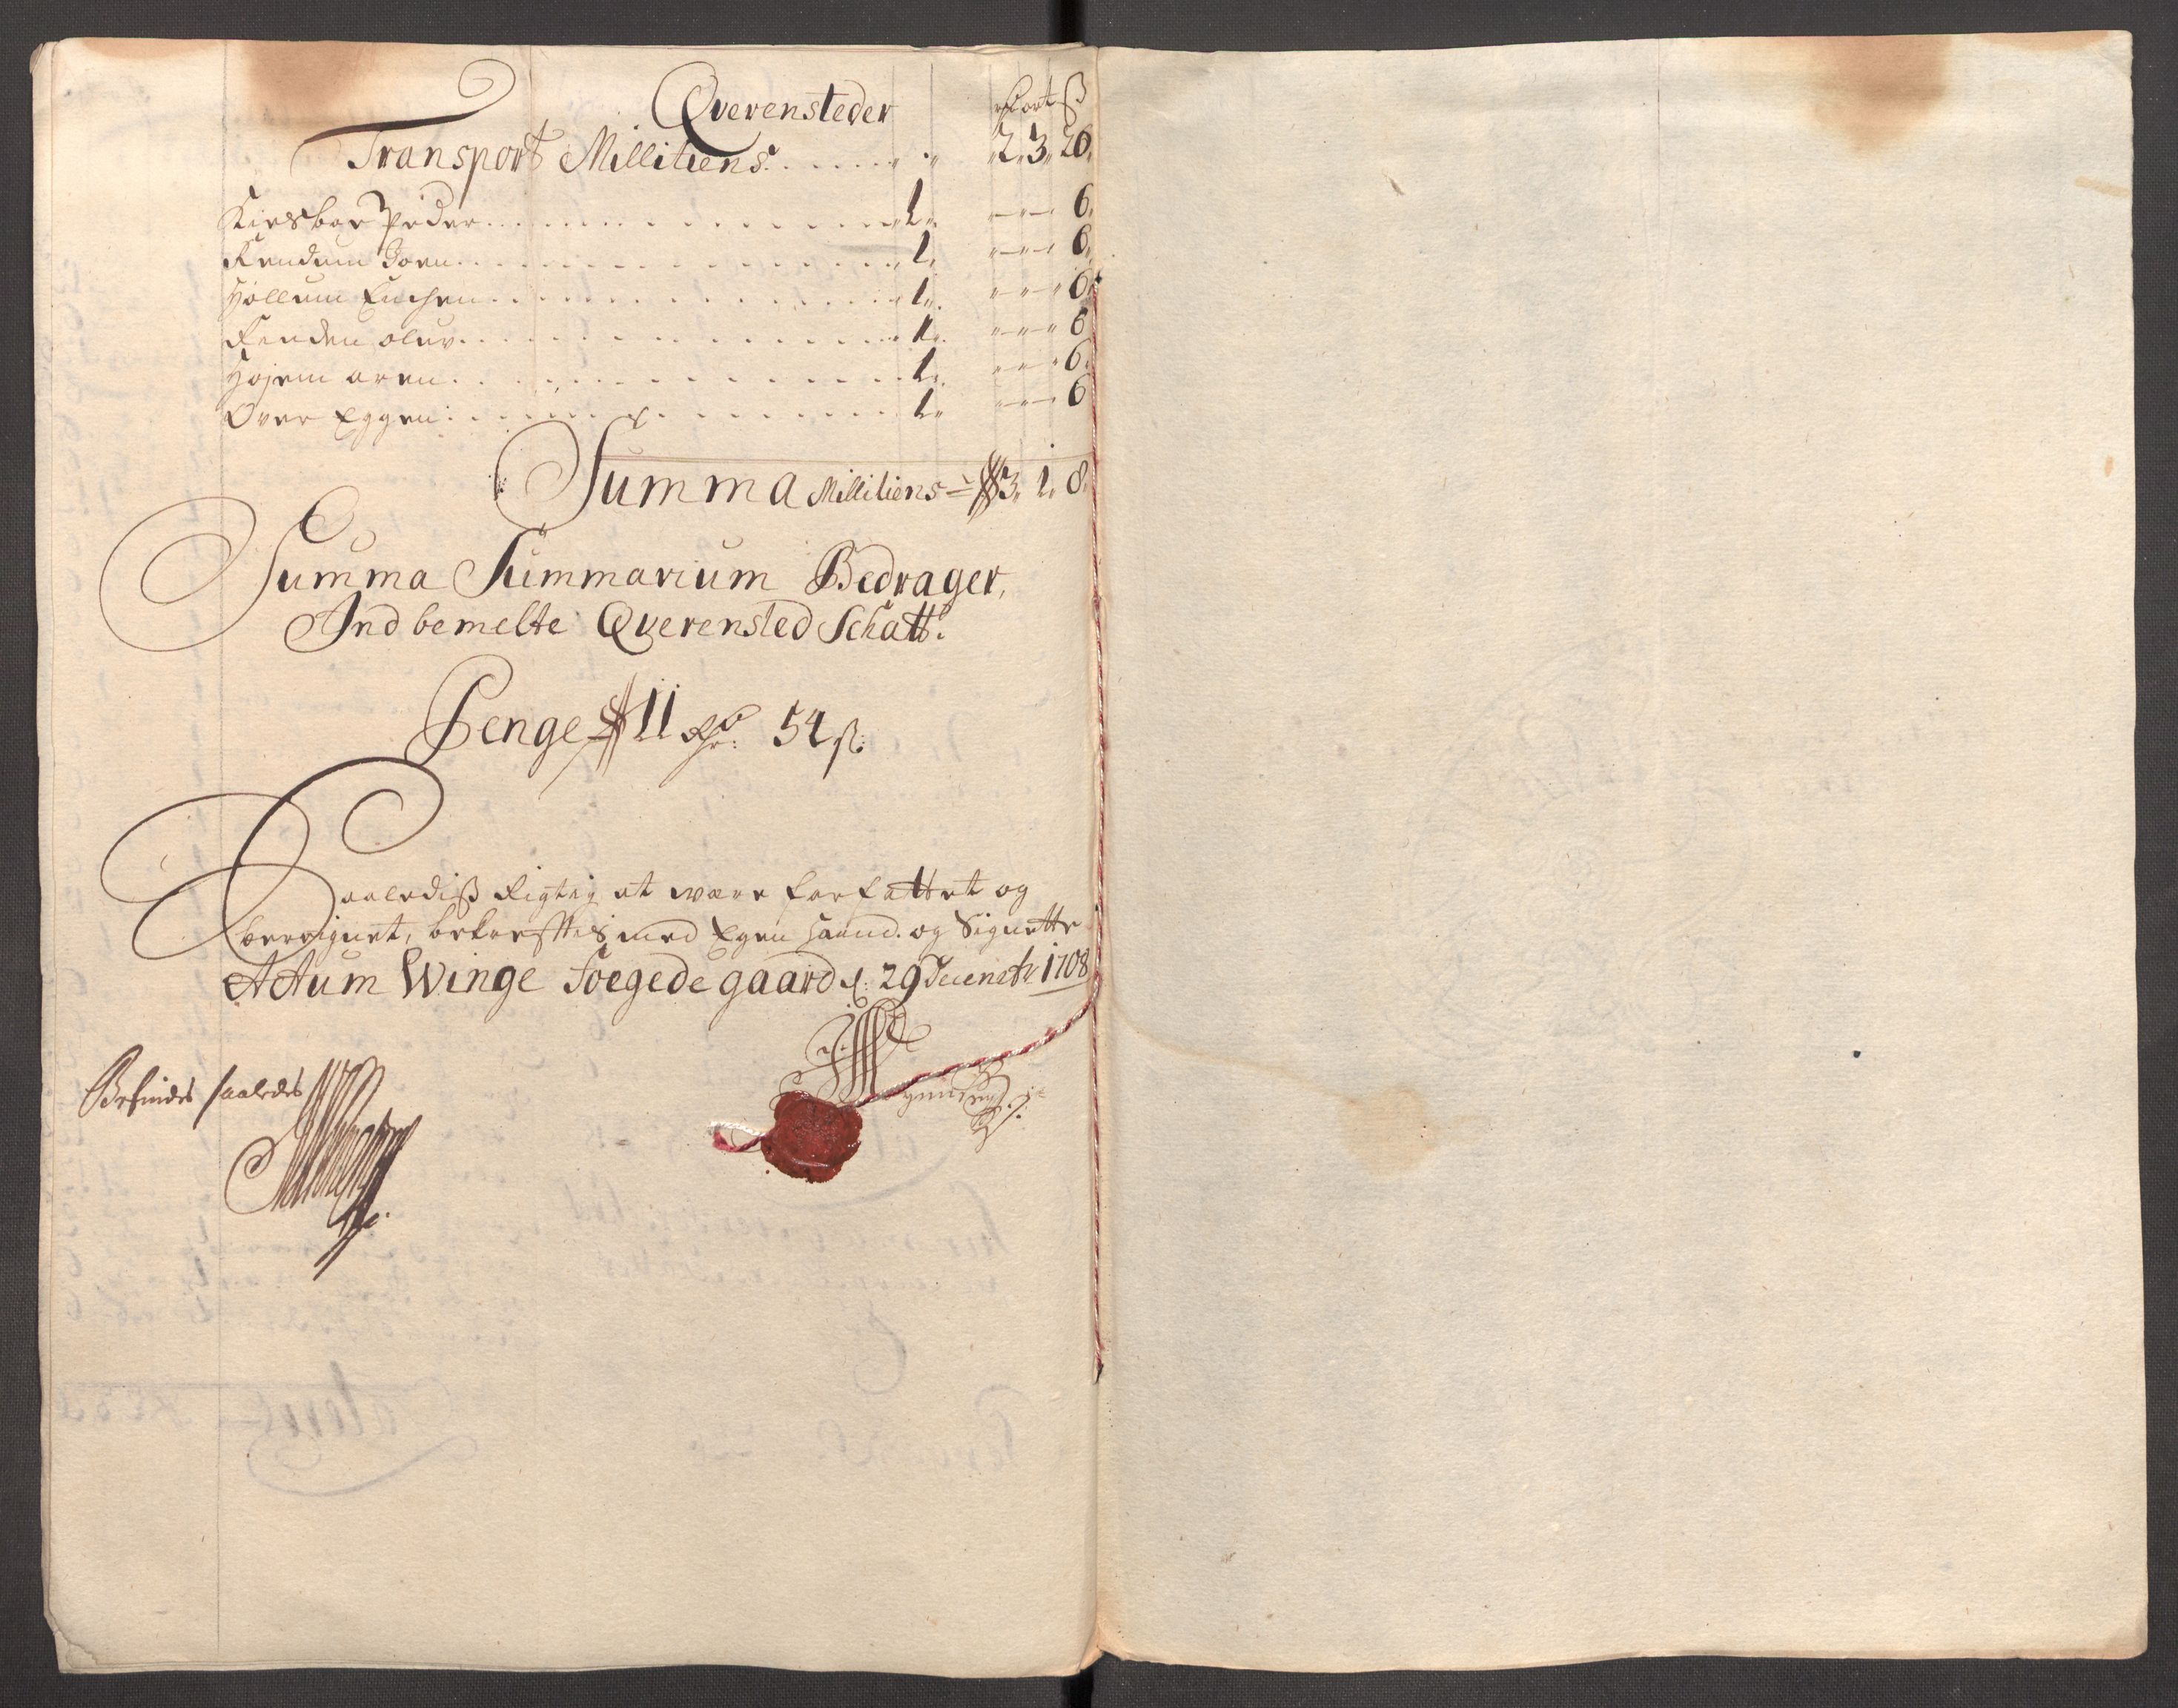 Qverensteder ort ß
Transport Millitiens. 2. 3. 20.
Kiesboe Peder 1. 6.
Rendum Joen 1. 6.
Höllum 1. 6.
Renden oluv 1. 6
Höjem aren 1. 6.
Over Eggen 1. 6
Summa Millitiens 3. 1. 8.
Summa Summarium Bedrager,
Ind bemelte Qverensted Schatt.
Penge 11 54 ß.
Saalediß Rigtig at være forfattet og
beregnet, bekreftes med Egen Haand. og Signette
Actum Winge Foegede gaard d. 29 Decembr 1708
Befindes saaledes